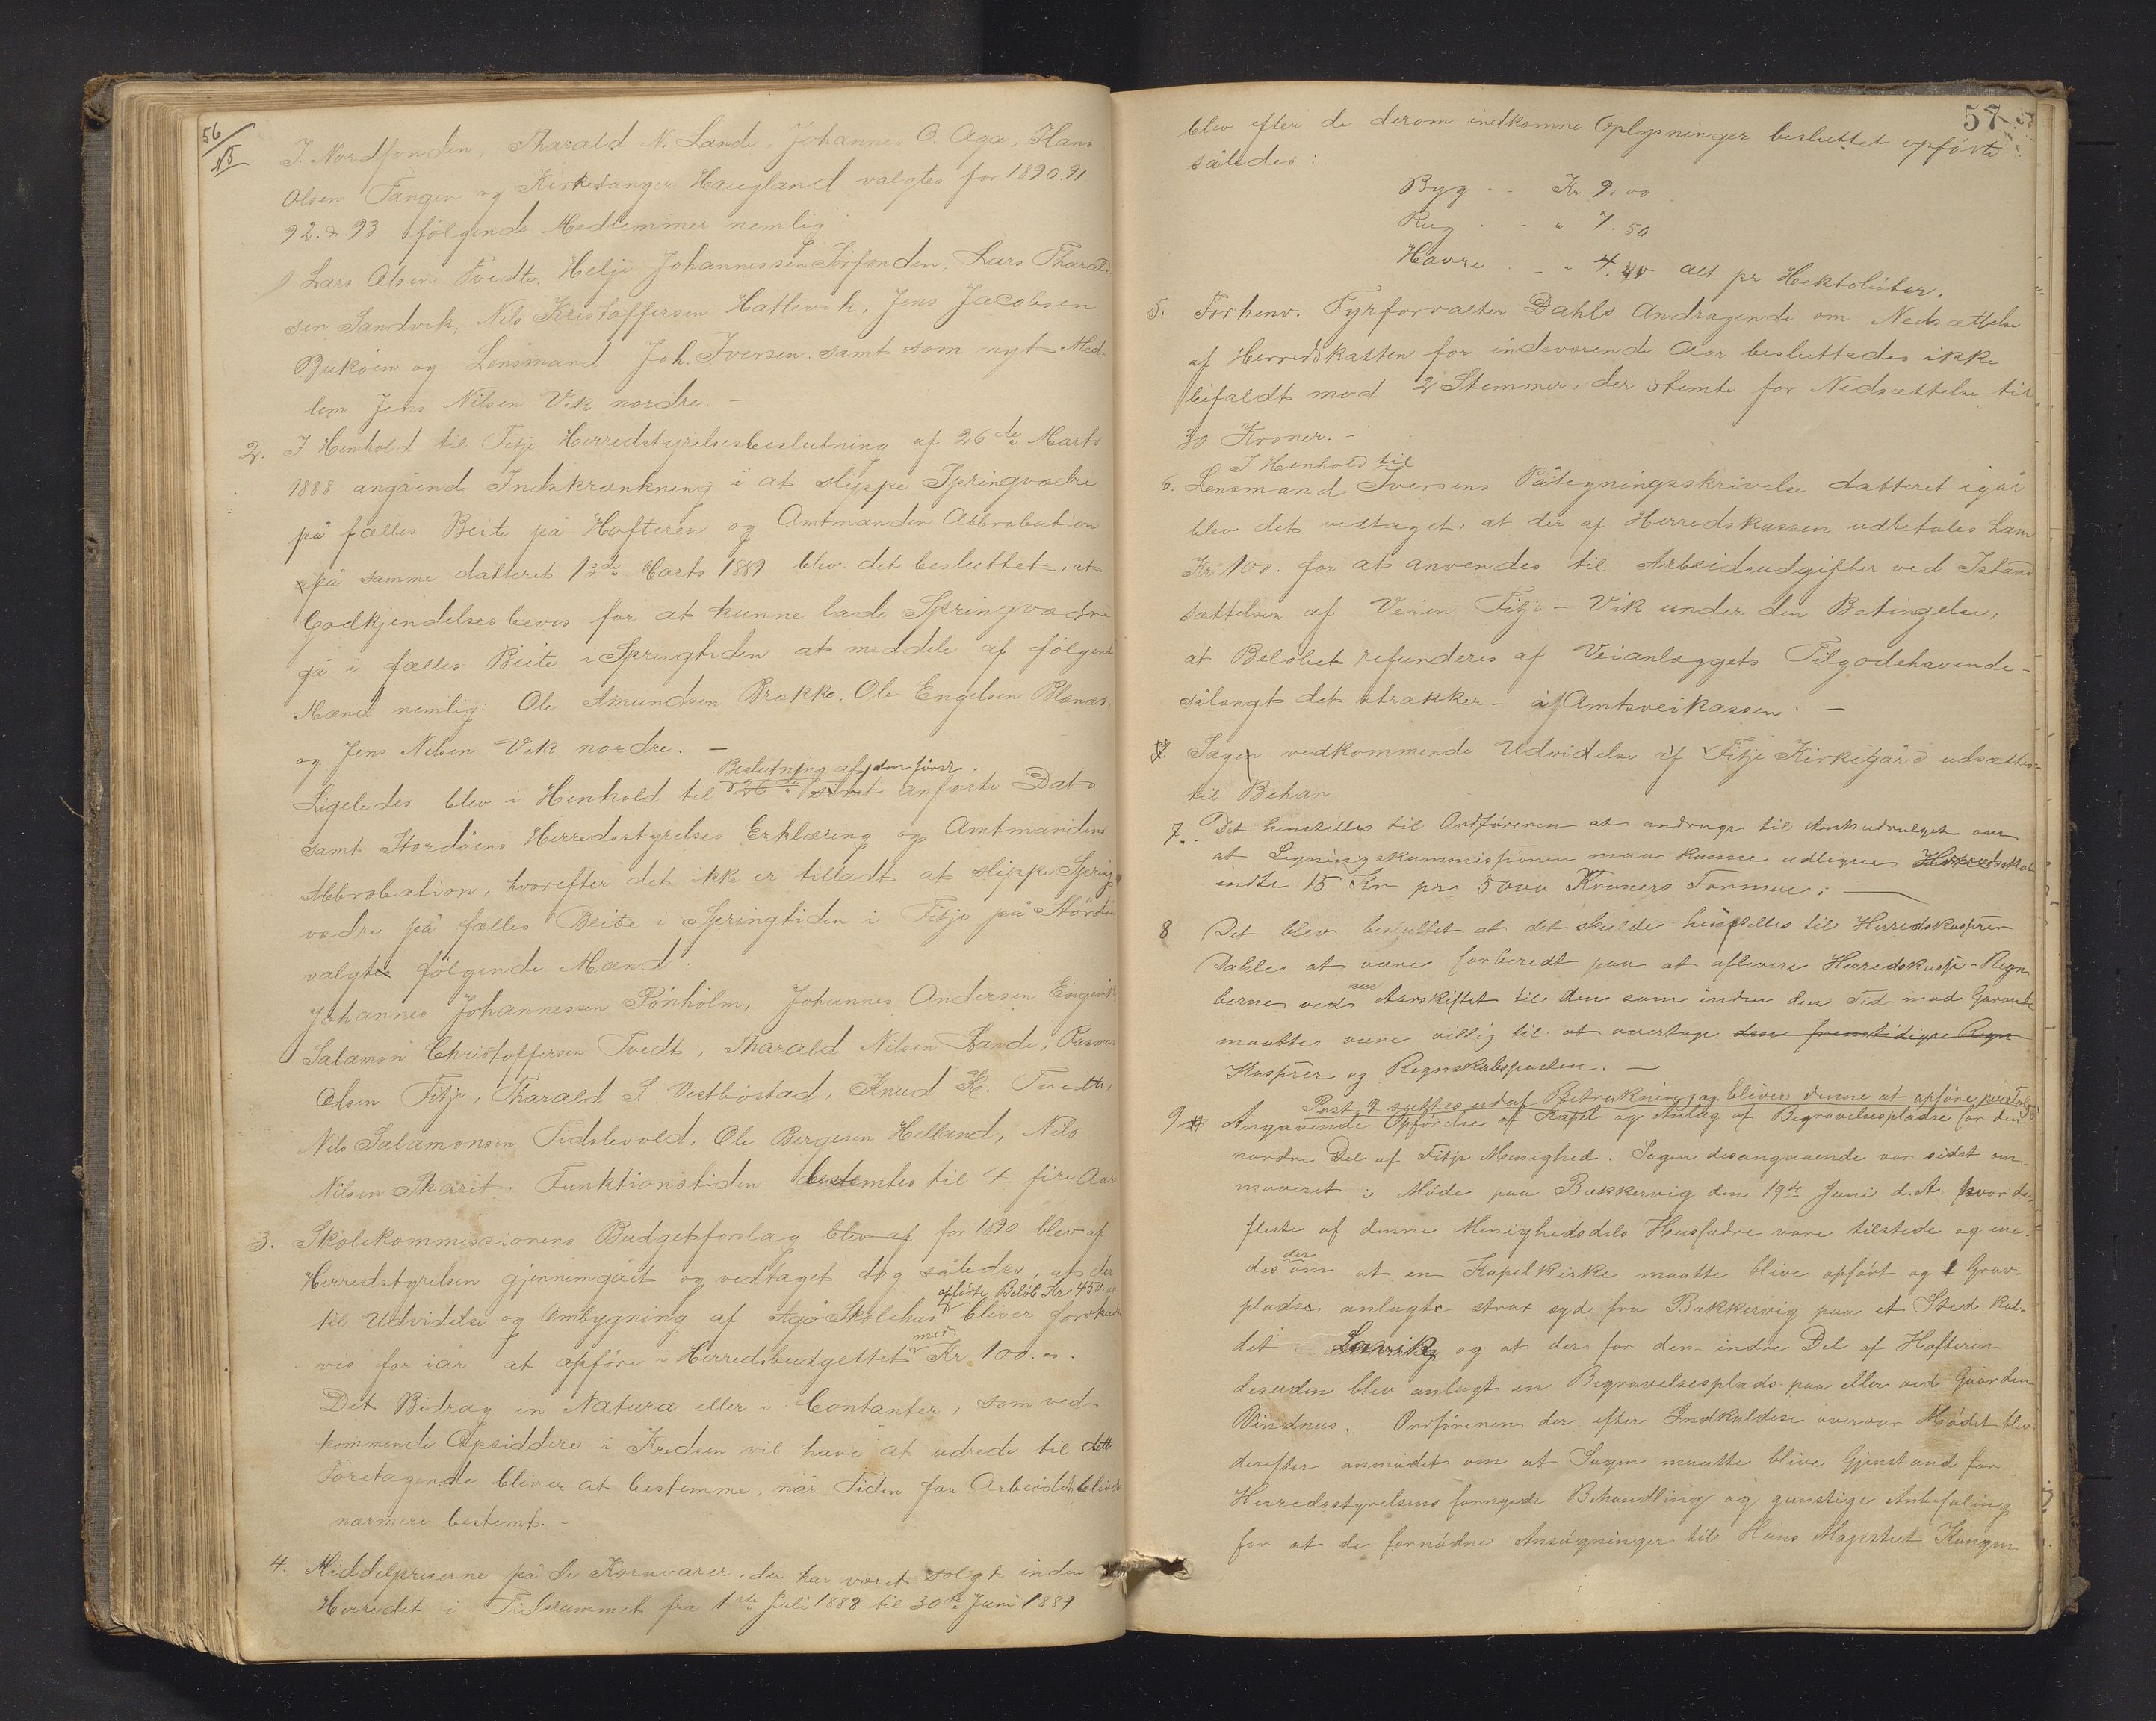 56/
15
J. Nordfonden, Tharald N. Lande, Johannes O. Aga, Hans
Olsen Tangen og Kirkesanger Haugland valgtes for 1890. 91
92. & 93 følgende Medlemmer nemlig:
Lars Olsen Tvedte, Helje Johannessen Sørfonden, Lars Tharald
sen Sandvik, Nils Kristoffersen Hatlevik, Jens Jacobsen
Bukøen og Lensmand Joh. Iversen samt som nyt Med-
lem Jens Nilsen Vik nordre. –
2. I Henhold til Fitje Herredstyrelsesbeslutning af 26de Marts
1888 angående Indskrænkning i at slippe Springvædre
på fælles Beite på Hafteren og Amtmanden Abbrobation
på samme datteret 13de Marts 1889 blev det besluttet, at
Godkjendelsesbevis for at kunne lade Springvædre
gå i fælles Beite i Springtiden at meddele af følgende
Mænd nemlig: Ole Amundsen Brække, Ole Engelsen Blænæs,
og Jens Nilsen Vik nordre. –
Beslutning af den først
Ligeledes blev i Henhold til anførte Dato
samt Stordøens Herredsstyrelses Erklæring og Amtmandens
Abbrobation, hvorefter det ikke er tilladt at slippe Spring
vædre på fælles Beite i Springtiden i Fitje på Stordøen
valgtes følgende Mænd:
Johannes Johannessen Rønholm, Johannes Andersen Engevik,
Salamon Christoffersen Tvedt, Tharald Nilsen Lande, Rasmus
Olsen Fitje, Tharald S. Vestbøstad, Knud K. Tvedte,
Nils Salamonsen Tidslevold, Ole Bergesen Helland, Nils
Nilsen Skarit. Funktionstiden bestemtes til 4 fire Aar
3. Skolekommissionens Budgetsforslag blev af for 1890 blev af
Herredstyrelsen gjennemgået og vedtaget dog således, at der
opførte Beløb Kr 450.00
til Udvidelse og Ombygning af Agø Skolehus bliver forskuds
med
vis for iår at opføre i Herredsbudgettet Kr. 100.00.
Det Bidrag in Natura eller i Contanter, som ved-
kommende Opsiddere i Kredsen vil have at udrede til dette
Foretagende bliver at bestemme, når Tiden for Arbeidet bliver
nærmere bestemt. –
4. Middelpriserne på de Kornvarer, der har været solgt inden
Herredet i Tidsrummet fra 1ste Juli 1888 til 30te Juni 1889
57
blev efter de derom indkomne Oplysninger besluttet opført
således:
Byg - - Kr 9.00
Rug - - " 7.50
Havre - - " 4.40 alt pr Hektoliter.
5. Forhenv. Fyrforvalter Dahls Andragende om Nedsættelse
af Herredskatten for indeværende Aar besluttedes ikke
bifaldt mod 2 Stemmer, der stemte for Nedsættelse til
30 Kroner. –
I Henhold til
6. Lensmand Iversens Påtegningsskrivelse datteret igår
blev det vedtaget, at der af Herredskassen udbetales ham
Kr 100. for at anvendes til Arbeidsudgifter ved Istand
sættelsen af Veien Fitje – Vik under den Betingelse,
at Beløbet refunderes af Veianlæggets Tilgodehavende –
sålangt det strækker – af Amtsveikassen. –
7. Sagen vedkommende Udvidelse af Fitje Kirkegård udsættes
til Behan
7. Det henstilles til Ordføreren at andrage til Amtsudvalget om
at Ligningskommissionen maa kunne udligne Herredsskat
indtil 15 Kr pr 5000 Kroners Formue. —
8 Det blev besluttet at det skulde henstilles til Herredskasserer
Dahle at være forberedt paa at aflevere Herredskasse-Regn
berne ved Aarskiftet til den som inden den Tid mod Garanti
maatte være villig til at overtage den fremtidige Regn
Kasserer og Regnskabsposten. —
Post 9 sættes ud af Betrakning og bliver denne at opføre
9 Angaaende Opførelse af Kapel og Anlæg af Begravelsesplads for den
nordre Del af Fitje Menighed. Sagen desangaaende var sidst om-
in Møde paa Bakkervig den 19de Juni d.A. hvor de
fleste af denne Menighedsdels Husfædre vare tilstede og ene-
der
des om at en Kapelkirke maatte blive opført og 1 Grav-
plads anlagt strax syd fra Bakkervig paa et Sted kal-
det Larvik og at der for den indre Del af Hafteren
desuden blev anlagt en Begravelsesplads paa eller ved Gaarden
Vindnes. Ordføreren der efter Indkaldese overvar Mødet blev
derefter anmodet om at Sagen maatte blive Gjenstand for
Herredsstyrelsens fornyede Behandling og gunstige Anbefaling
for at de fornødne Ansøgninger til Hans Majestæt Kongen